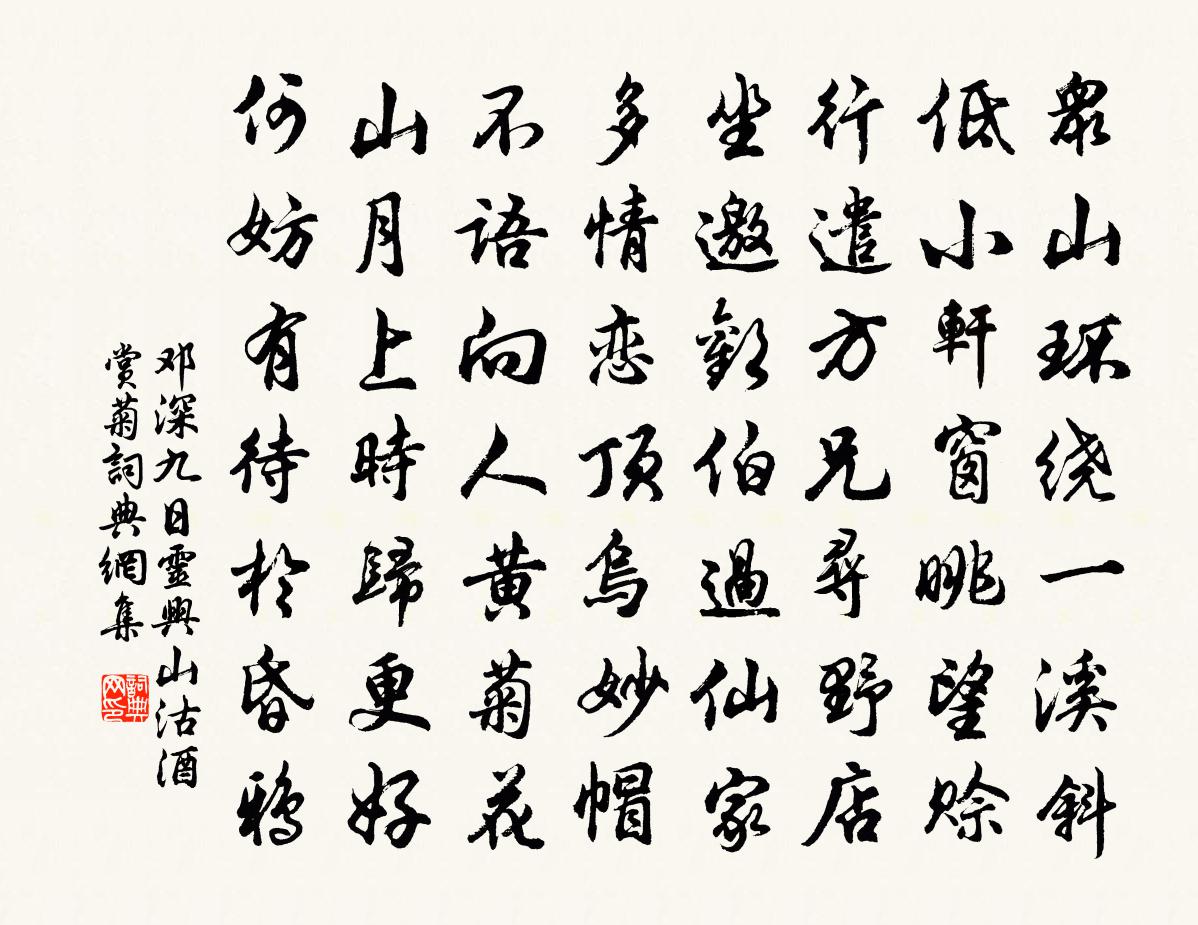 衆山环绕一溪斜
低小軒窗眺望赊
行遣方兄尋野店
坐邀歡伯過仙家
多情恋頂烏妙帽
不語向人黄菊花
山月上時歸更好
何妨有待於昏鴉
邓深九日靈興山沽酒
赏菊詞典網集
詞典
网印